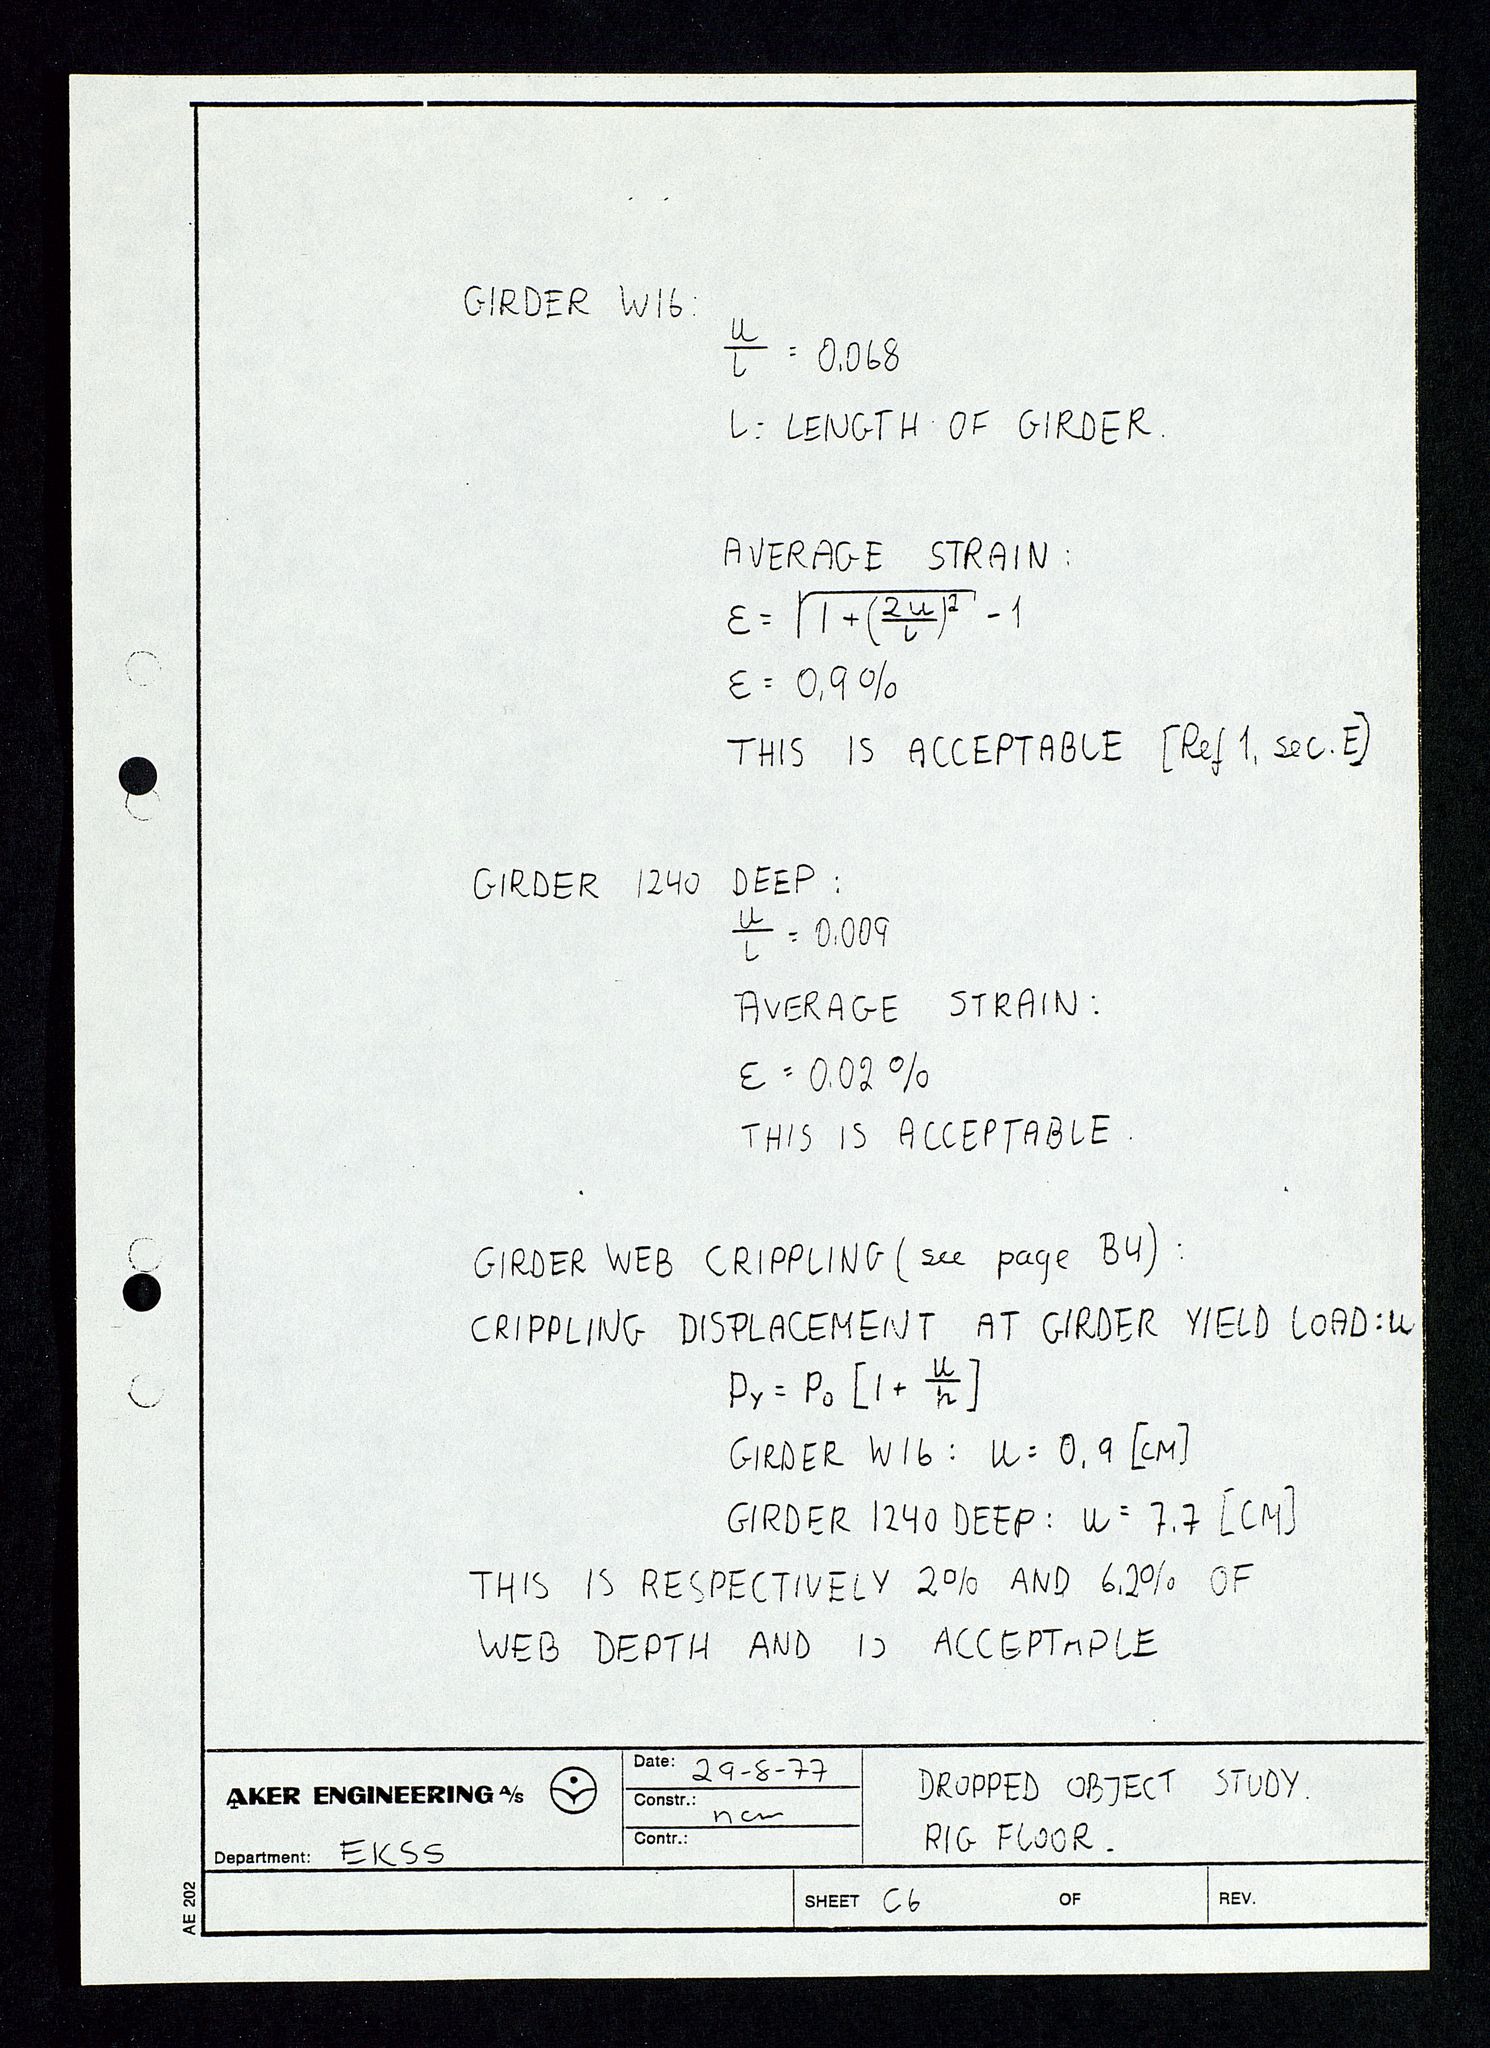 GIRDER W16:
u/L = 0.068
L: LENGTH OF GIRDER.
AVERAGE STRAIN:
ε = √1+(2u/L)² - 1
ε = 0,9%
THIS IS ACCEPTABLE [Ref 1, sec. E]
GIRDER 1240 DEEP:
u/L = 0.009
AVERAGE STRAIN:
ε = 0.02%
THIS IS ACCEPTABLE.
GIRDER WEB CRIPPLING (see page B4):
CRIPPLING DISPLACEMENT AT GIRDER YIELD LOAD: u
Py = Po [1 + u/h]
GIRDER W16: u = 0,9 [CM]
GIRDER 1240 DEEP: u = 7.7 [CM]
THIS IS RESPECTIVELY 2% AND 6.2% OF
WEB DEPTH AND IS ACCEPTABLE
AKER ENGINEERING A/S
Department: EKSS
Date: 29-8-77
Constr.: ncm
Contr.:
DROPPED OBJECT STUDY.
RIG FLOOR.
SHEET C6 OF
REV.
AE 202